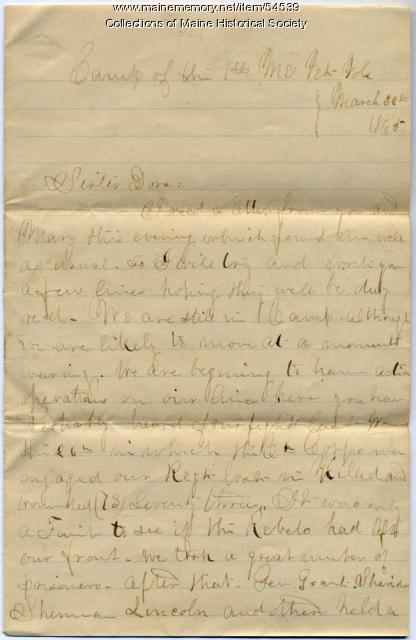 www.mainememory.net/item/54539
Collections of Maine Historical Society
Camp of the 1st Me Vet. Vols
March 30th
1865
Sister Dora:
I recd a letter from you and
Mary this evening which found me well
as usual. So I will try and write you
a few lines hoping they will be duly
recd. We are still in Camp although
we are likely to move at a moments
warning. We are begining to have active
operations on our lines here you have
Probably heard of our fight
the in which the 6th Corps was
engaged our Regt loss in Killed and
wounded (73) Seventy three. It was only
a Faint to see if the Rebels had left
our front. We took a great number of
prisoners. After that Gen Grant. Sheridan
Sherman Lincoln and others held a